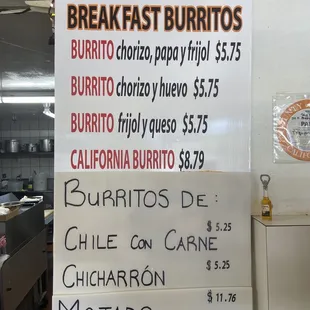 BREAKFAST BURRITOS
BURRITO chorizo, papa y frijol $5.75
BURRITO chorizo y huevo $5.75
BURRITO frijol y queso $5.75
CALIFORNIA BURRITO $8.79
BURRITOS DE:
CHILE CON CARNE $5.25
CHICHARRÓN $5.25
$11.76